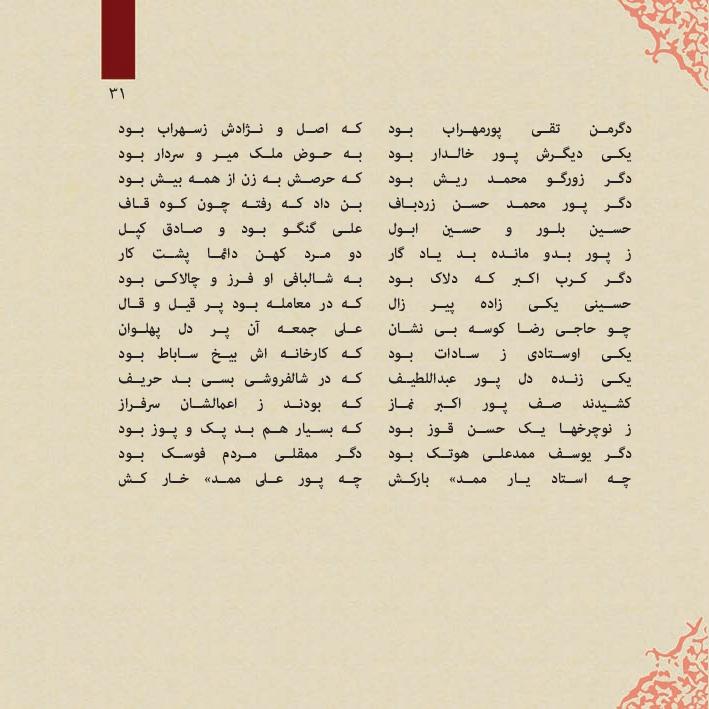 ۳۱
دگرمن تقی پورمهراب بود که اصل و نژادش زسهراب بود
یکی دیگرش پور خالدار بود به حوض ملک میر و سردار بود
دگر زورگو محمد ریش بود که حرصش به زن از همه بیش بود
دگر پور محمد حسن زردباف بن داد که رفته چون کوه قاف
حسین بلور و حسین ابول علی گنگو بود و صادق کپل
ز پور بدو مانده بد یاد گار دو مرد کهن دائما پشت کار
دگر کرب اکبر که دلاک بود به شالبافی او فرز و چالاکی بود
حسینی یکی زاده پیر زال که در معامله بود پر قیل و قال
چو حاجی رضا کوسه بی نشان علی جمعه آن پر دل پهلوان
یکی اوستادی ز سادات بود که کارخانه اش بیخ ساباط بود
یکی زنده دل پور عبداللطیف که در شالفروشی بسی بد حریف
کشیدند صف پور اکبر نماز که بودند ز اعمالشان سرفراز
ز نوچرخها یک حسن قوز بود که بسیار هم بد پک و پوز بود
دگر یوسف ممدعلی هوتک بود دگر ممقلی مردم فوسک بود
چه استاد یار ممد» بارکش چه پور علی ممد» خار کش